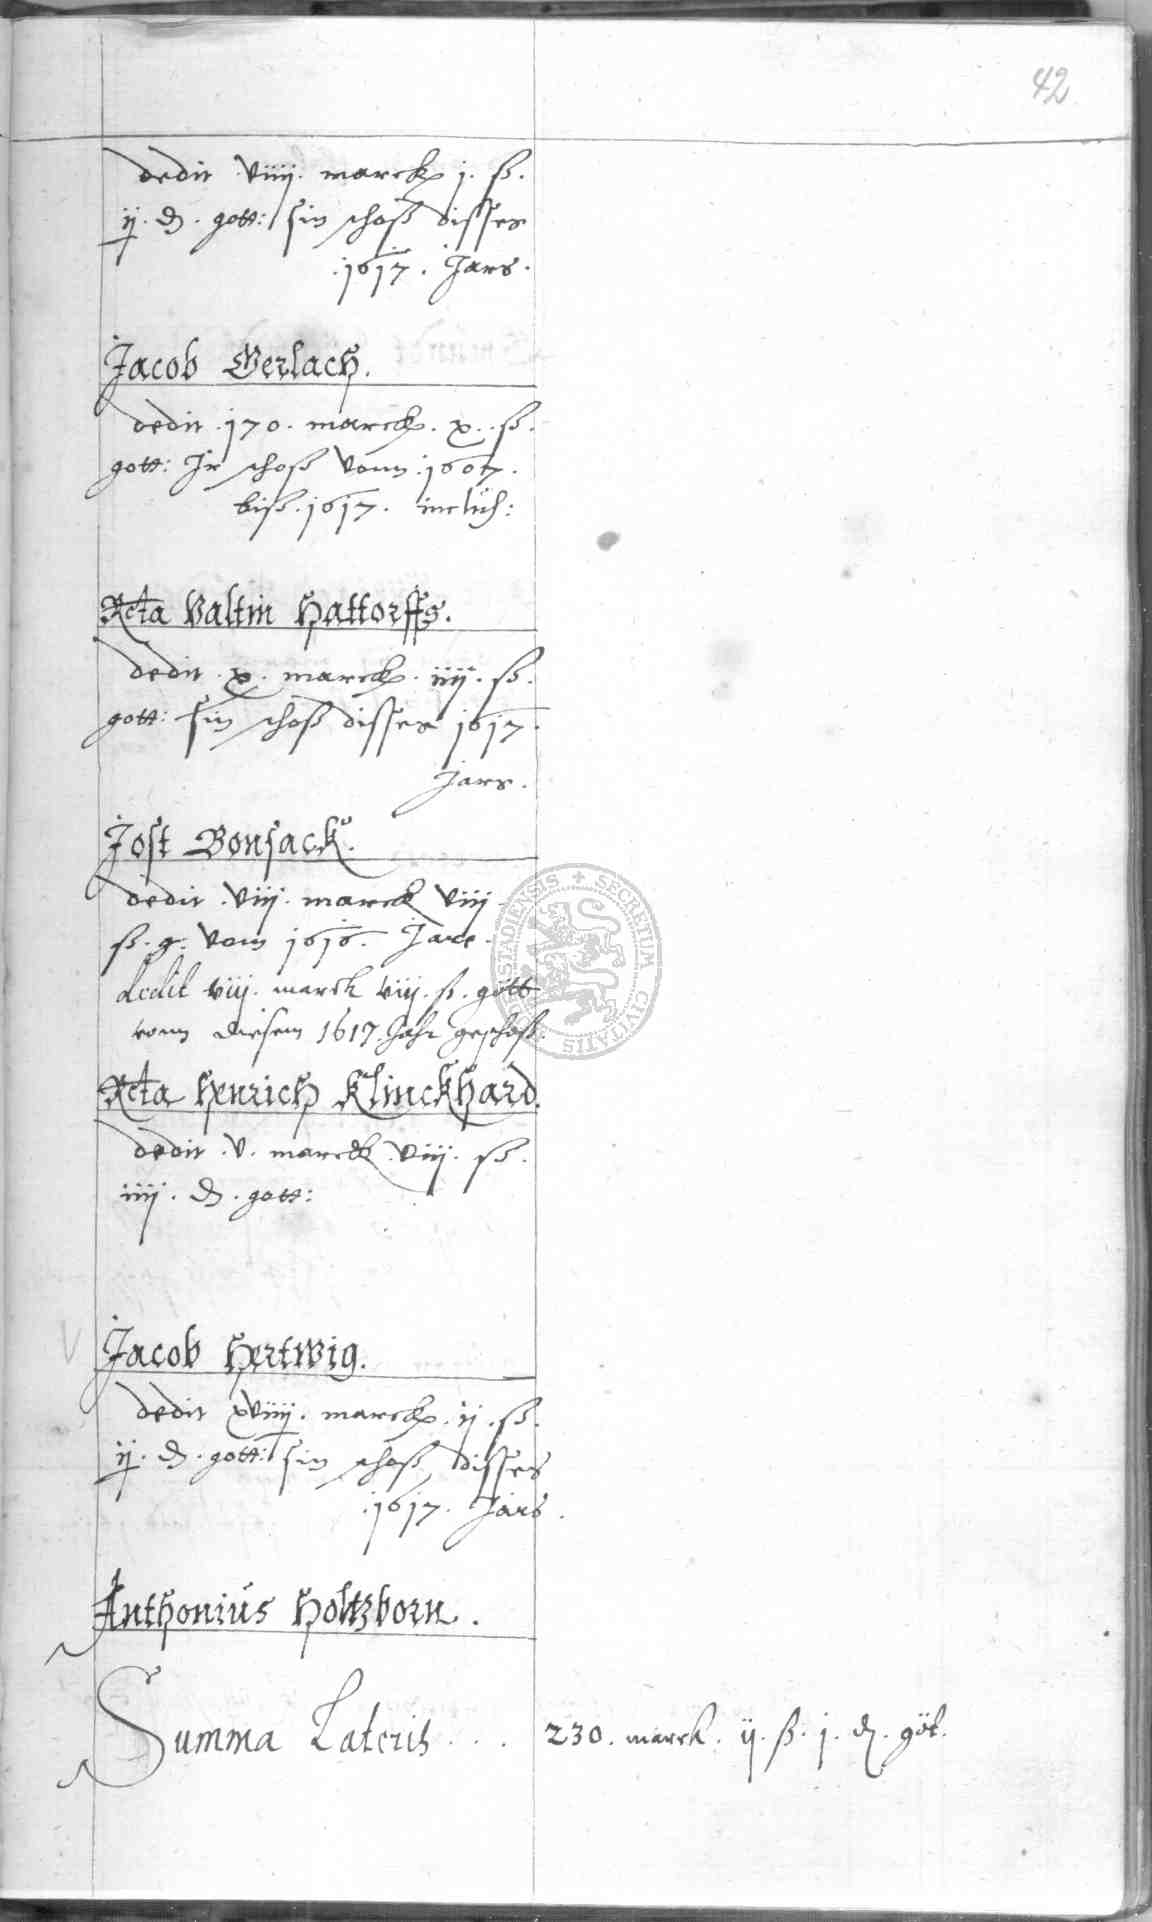 42
dedit viiij. marck j. ß.
ij. ₰. gott: sin schoß disses
.1617. Jars.
Jacob Gerlach.
dedit .170. marck. x. ß.
gott: Ir schoß vonn .1607.
biß .1617. inclus:
Rcta Valtin Hattorffs.
dedit .x. marck. iiij. ß.
gott: sin schoß disses 1617.
Jars.
Jost Bonsack.
dedit .viij. marck viij
ß. g. vom 1616. Jare.
dedit viij. marck viij. ß. gött
vonn diesem 1617. Jahr geschoß.
Rcta Henrich Klinckhard.
dedit .v. marck .viij. ß.
iiij. ₰. gott:
Jacob Hertwig.
dedit xviiij. marck. ij. ß.
ij. ₰. gott: sin schoß disses
.1617. Jars.
Anthonius Holtzborn.
Summa Lateris . . . 230. marck. ij. ß. j. ₰. göt.
SECRETUM CIVITATIS